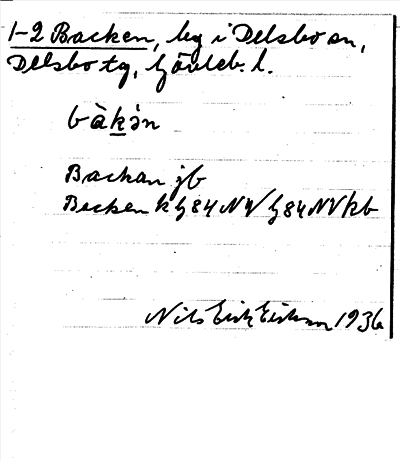 1-2 Backen, bg i Delsbo sn,
Delsbo tg, Gävleb. l.
bàkə̀n
Backan jb
Backen k G84NV G84NV kb
Nils Erik Eriksson 1936